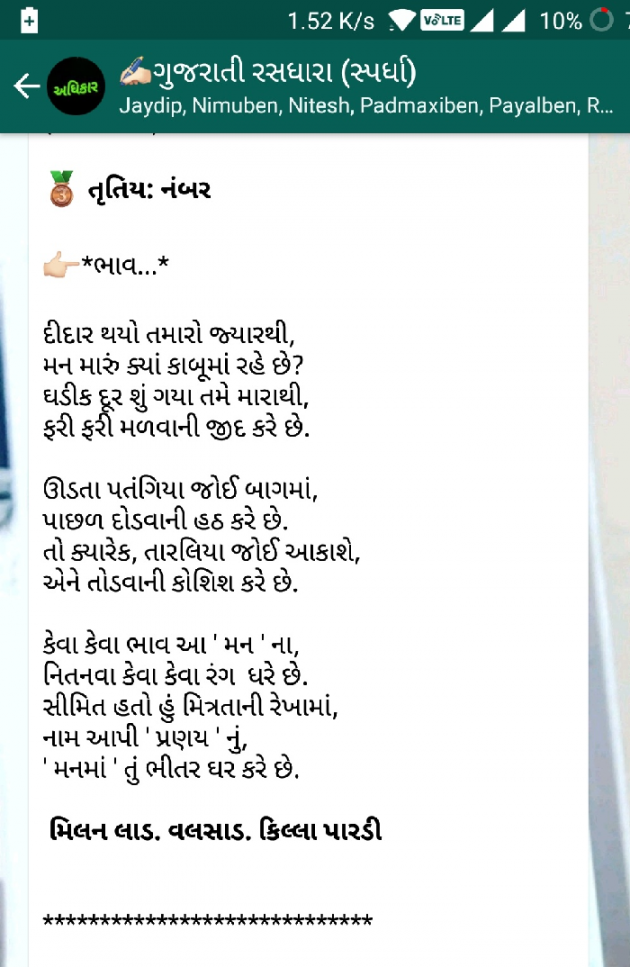 1.52 K/s VoLTE 10%
અધિકાર
✍🏻ગુજરાતી રસધારા (સ્પર્ધા)
Jaydip, Nimuben, Nitesh, Padmaxiben, Payalben, R...
🥉 તૃતિય: નંબર
👉🏻*ભાવ...*
દીદાર થયો તમારો જ્યારથી,
મન મારું ક્યાં કાબૂમાં રહે છે?
ઘડીક દૂર શું ગયા તમે મારાથી,
ફરી ફરી મળવાની જીદ કરે છે.
ઊડતા પતંગિયા જોઈ બાગમાં,
પાછળ દોડવાની હઠ કરે છે.
તો ક્યારેક, તારલિયા જોઈ આકાશે,
એને તોડવાની કોશિશ કરે છે.
કેવા કેવા ભાવ આ ' મન ' ના,
નિતનવા કેવા કેવા રંગ  ધરે છે.
સીમિત હતો હું મિત્રતાની રેખામાં,
નામ આપી ' પ્રણય ' નું,
' મનમાં ' તું ભીતર ઘર કરે છે.
મિલન લાડ. વલસાડ. કિલ્લા પારડી
*****************************